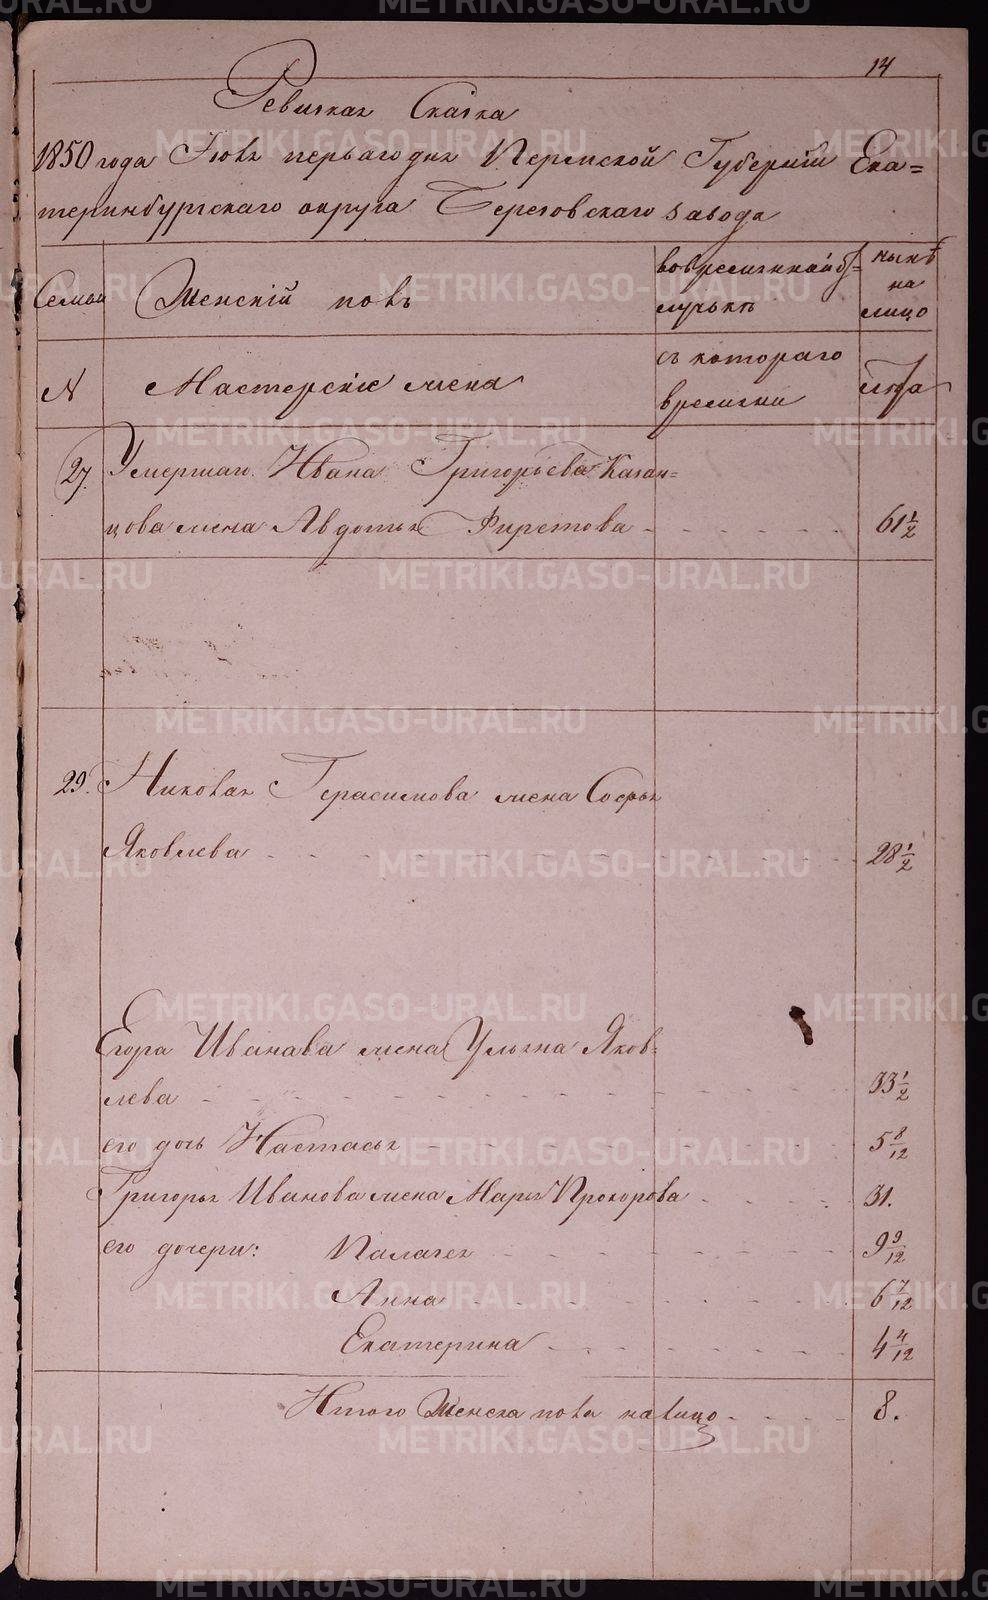 14
Ревизкая Сказка
1850 года Июля перьваго дня Пермской Губернiи Ека=
теринбургскаго округа Березовскаго завода
Семьи
Женскiй полъ
вовременной отлучькѣ
нынѣ на лицо
N
Мастерскiе жена
съ котораго времени
лѣта
27.
Умершаго Ивана Григорьева Казан=
цова жена Авдотья
61 1/2
29.
Николая Герасимова жена Софья
Яковлева
28 1/2
Егора Иванава жена Ульяна Яков=
лева
33 1/2
его дочь Настасья
5 8/12
Григорья Иванова жена Марья Прохорова
31.
его дочери: Палагея
9 9/12
Анна
6 7/12
Екатерина
4 4/12
Итого Женска пола налицо
8.
METRIKI.GASO-URAL.RU